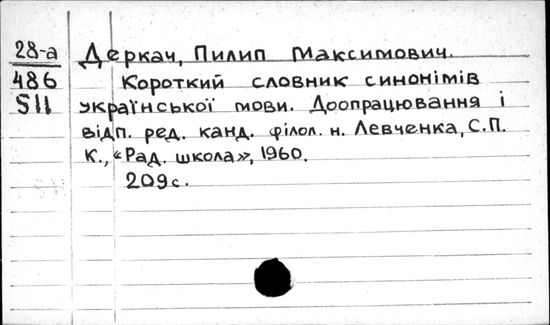 28-а Деркач, Пилип Максимович.
486 Короткий словник синонімів
S11 української мови. Доопрацювання і
відп. ред. канд. філол. н. Левченка, С.П.
К., «Рад. школа», 1960.
209с.